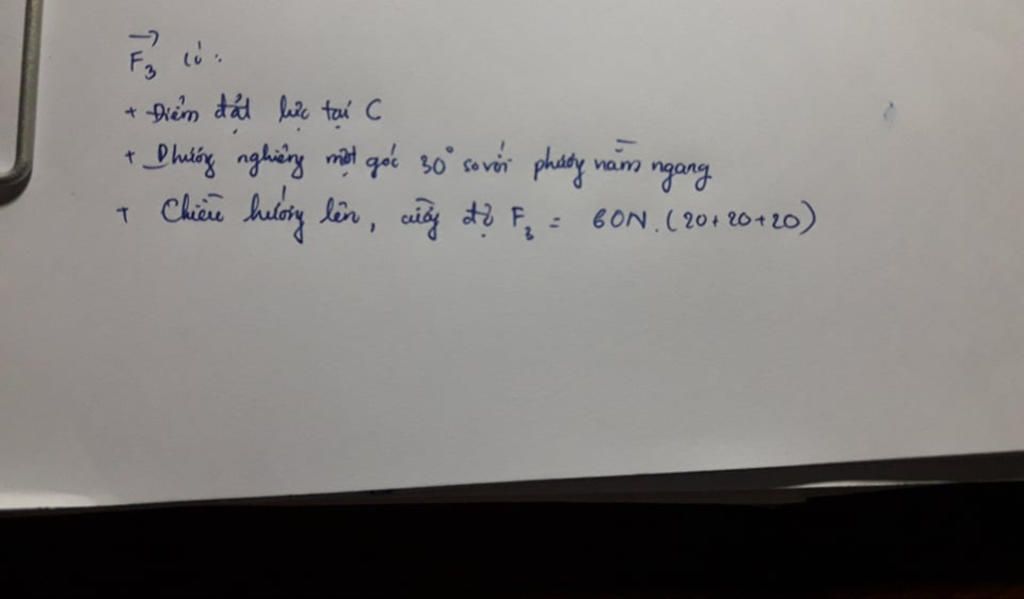 F₃ có:
+ Điểm đặt lực tại C
+ Phương nghiêng một góc 30° so với phương nằm ngang
+ Chiều hướng lên, cường độ F₃ = 60N. (20+20+20)